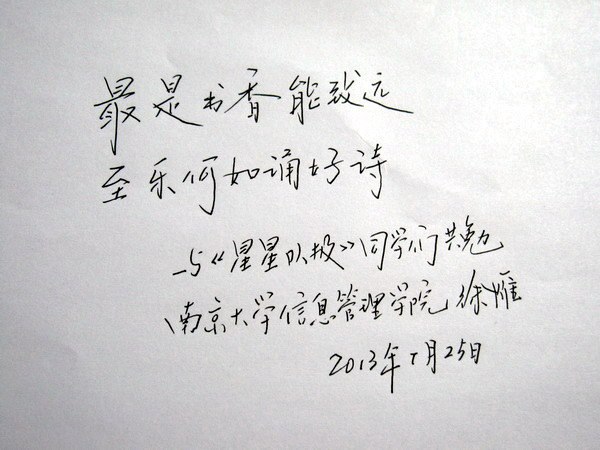 最是书香能致远
至乐何如诵好诗
—与《星星队报》同学们共勉
南京大学信息管理学院 徐雁
2013年7月25日